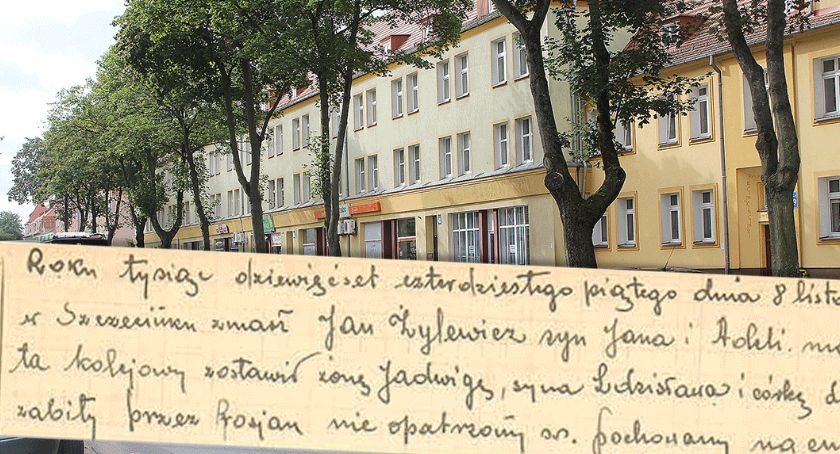 Roku tysiąc dziewięćset czterdziestego piątego dnia 8 list
w Szczecinku zmarł Jan Żylewicz syn Jana i Adeli.
ta kolejowy zostawił żonę Jadwigę, syna Zdzisława i córkę
zabity przez Rosjan nie opatrzony św. pochowany na